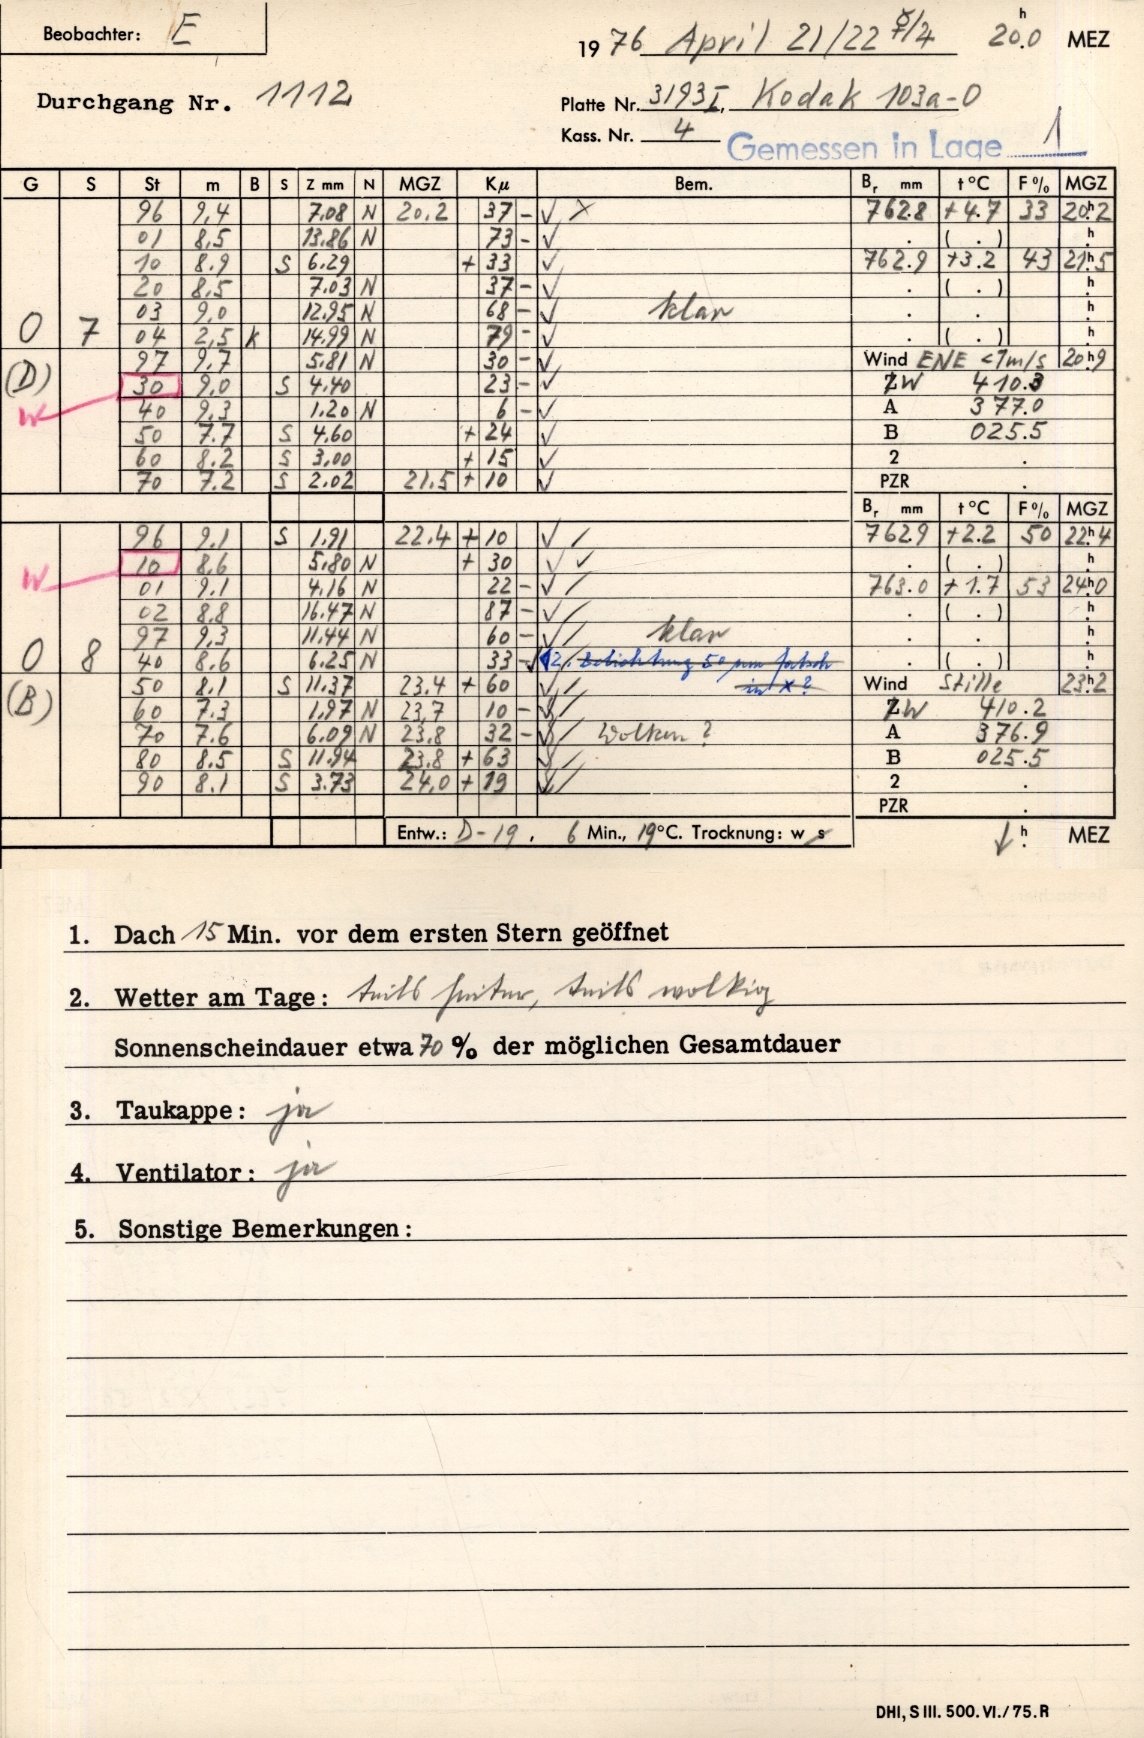 Beobachter: E
1976 April 21/22 ☿/♃ 20.0 h MEZ
Durchgang Nr. 1112
Platte Nr. 3193I, Kodak 103a-O
Kass. Nr. 4
Gemessen in Lage 1
G S St m B S Z mm N MGZ Kμ Bem. Br mm t °C F % MGZ
96 9,4 7.08 N 20.2 37 - √ × 762.8 +4.7 33 20h2
01 8,5 13.86 N 73 - √ . ( . ) h
10 8,9 S 6.29 + 33 √ 762.9 +3.2 43 21h5
20 8,5 7.03 N 37 - √ . ( . ) h
03 9,0 12.95 N 68 - √ klar . . h
0 7 04 2,5 k 14.99 N 79 - √ . ( . ) h
97 9,7 5.81 N 30 - √ Wind ENE <1m/s 20h9
(D) 30 9,0 S 4.40 23 - √ ZW 410.3
W 40 9,3 1.20 N 6 - √ A 377.0
50 7.7 S 4.60 + 24 √ B 025.5
60 8,2 S 3,00 + 15 √ 2 .
70 7.2 S 2.02 21.5 + 10 √ PZR .
Br mm t °C F % MGZ
96 9.1 S 1.91 22.4 + 10 √ / 762.9 +2.2 50 22h4
W 10 8,6 5.80 N + 30 √ √ . ( . ) h
01 9.1 4.16 N 22 - √ / 763.0 +1.7 53 24h0
02 8.8 16.47 N 87 - √ / . ( . ) h
97 9,3 11.44 N 60 - √ / klar . . h
0 8 40 8.6 6.25 N 33 - √ 2. Belichtung 50 μm falsch . ( . ) h
in x?
(B) 50 8.1 S 11.37 23.4 + 60 √ / Wind Stille 23h2
60 7.3 1.97 N 23,7 10 - √ / ZW 410.2
70 7.6 6.09 N 23,8 32 - √ / Wolken? A 376.9
80 8.5 S 11.94 23.8 + 63 √ / B 025.5
90 8.1 S 3.73 24,0 + 19 √ / 2 .
PZR .
Entw.: D-19, 6 Min., 19°C. Trocknung: w s h MEZ
1. Dach 15 Min. vor dem ersten Stern geöffnet
2. Wetter am Tage: teils heiter, teils wolkig
Sonnenscheindauer etwa 70 % der möglichen Gesamtdauer
3. Taukappe: ja
4. Ventilator: ja
5. Sonstige Bemerkungen:
DHI, S III. 500. VI./75. R